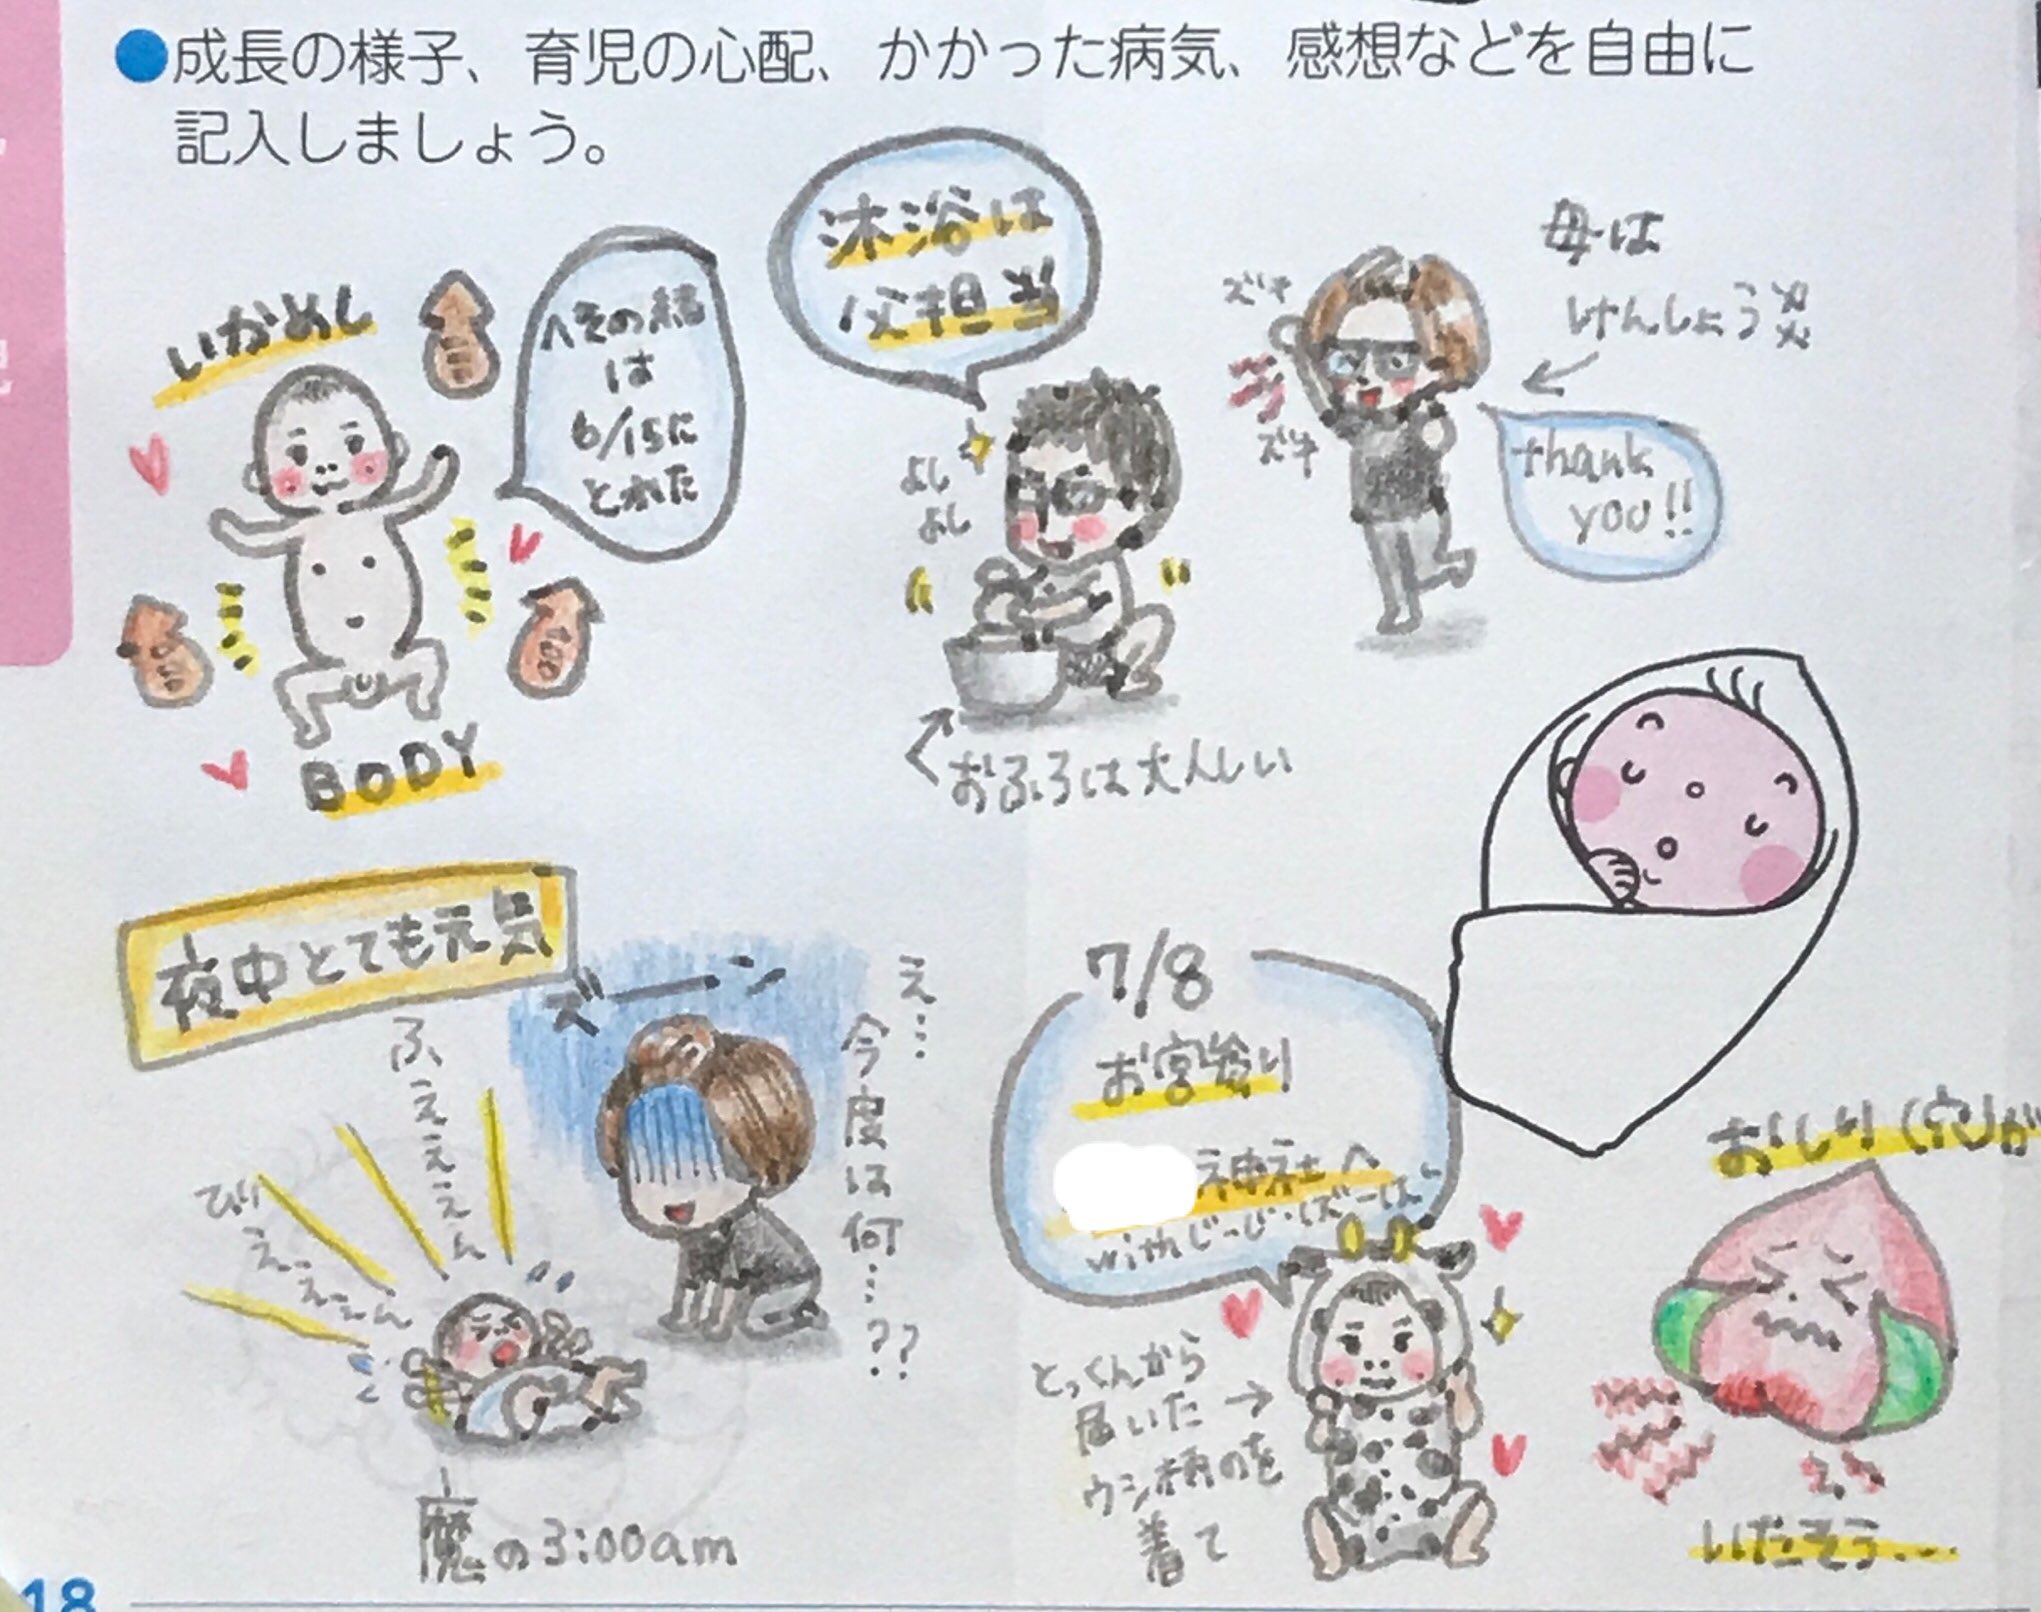 ●成長の様子、育児の心配、かかった病気、感想などを自由に
記入しましょう。
いかめし
へその緒
は
6/15に
とれた
BODY
沐浴は
父担当
よし
よし
おふろは大人しい
母は
けんしょう炎
ズキ
ズキ
thank
you!!
夜中とても元気
ズーン
え…
今度は何…??
ふえええええん
びりえええーん
魔の3:00am
7/8
お宮参り
神社へ
withじーじ・ばーばー
とっくんから
届いた
ウシ柄のを
着て
おしり(穴)が
いたそう…
18